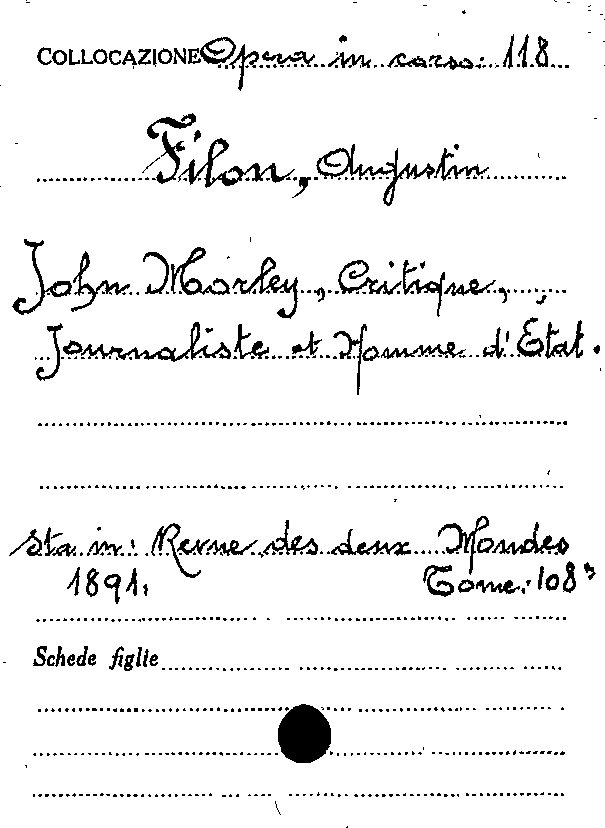 COLLOCAZIONE Opera in corso: 118
Filon, Augustin
John Morley, Critique,
Journaliste et Homme d'État.
Sta in: Revue des deux Mondes
1891. Tome: 108º
Schede figlie